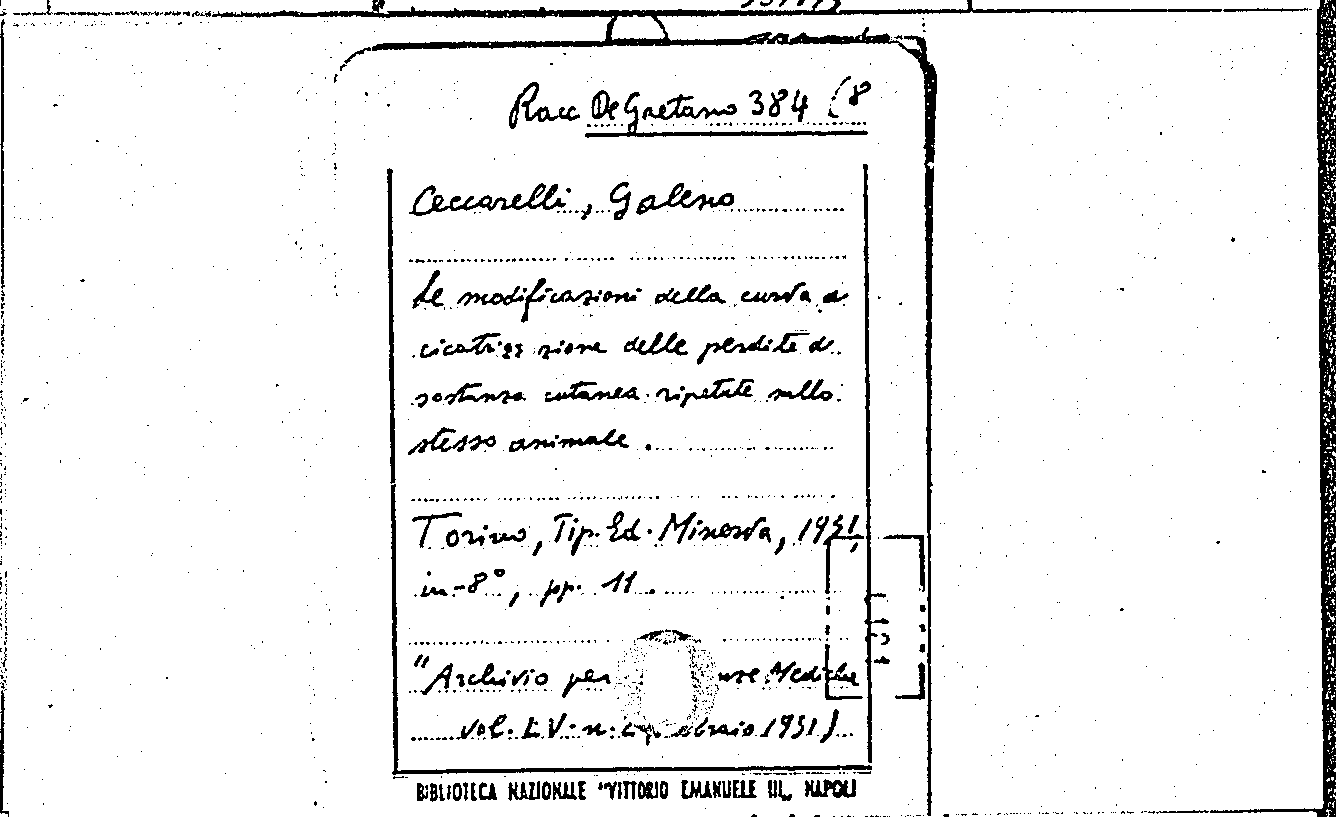 Racc De Gaetano 384 (8
Ceccarelli, Galeno
Le modificazioni della curva di
cicatrizzazione delle perdite di
sostanza cutanea ripetute sullo
stesso animale.
Torino, Tip. Ed. Minerva, 1931,
in-8°, pp. 11.
"Archivio per Mediche
vol. LV. n. 1931)
BIBLIOTECA NAZIONALE "VITTORIO EMANUELE III„ NAPOLI